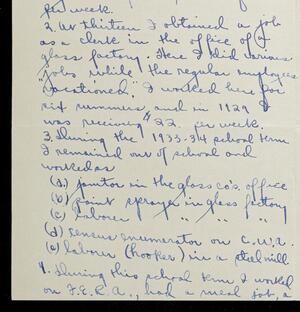 per week.
2. At thirteen I obtained a job
as a clerk in the office of a
glass factory. Here I did various
jobs while "the regular employees
vacationed." I worked here for
six summers, and in 1929 I
was receiving $22 per week.
3. During the 1933-34 school term
I remained out of school and
worked as
(a) janitor in the glass co's. office
(b) paint sprayer in glass factory
(c) laborer " " "
(d) census enumerator on C.W.A.
(e) laborer (hooker) in a steel mill.
4. During this school term I worked
on F.E.R.A., had a meal job, a